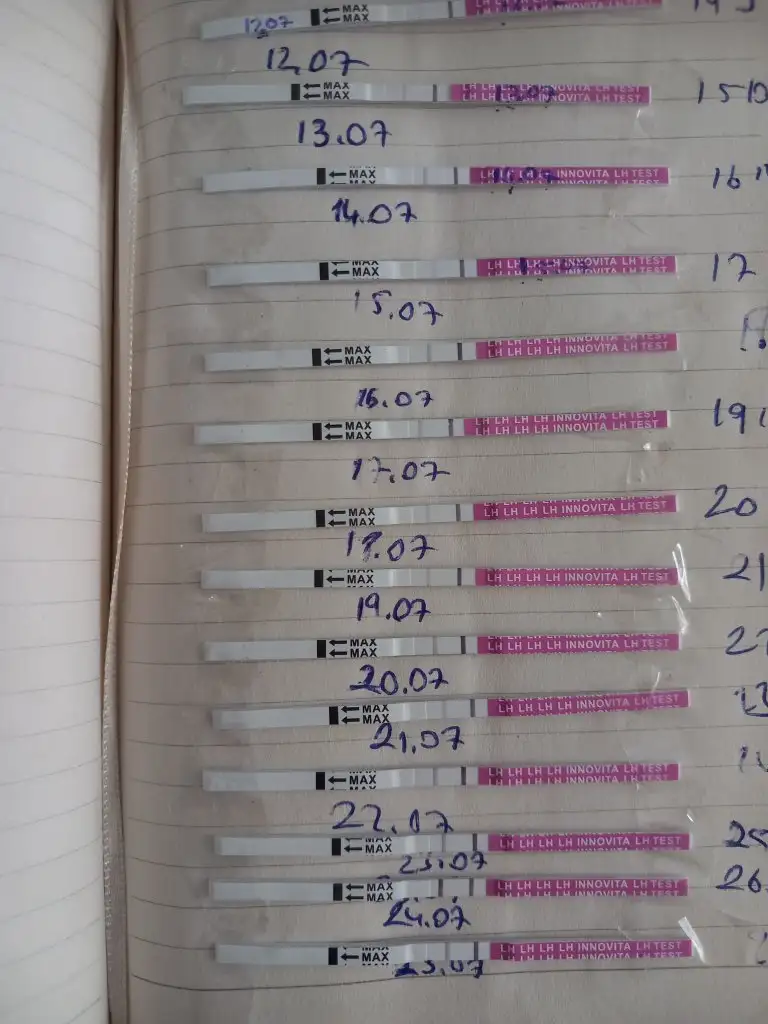 12.07 MAX MAX 19
12.07
MAX MAX LH LH LH LH INNOVITA LH TEST 15
13.07
MAX LH LH LH LH INNOVITA LH TEST 16
14.07
MAX MAX LH LH LH LH INNOVITA LH TEST 17
15.07
MAX MAX LH LH LH LH INNOVITA LH TEST
16.07
MAX MAX LH LH LH LH INNOVITA LH TEST 19
17.07
MAX MAX LH LH LH LH INNOVITA LH TEST 20
18.07
MAX LH LH LH LH INNOVITA LH TEST 21
19.07
MAX MAX LH LH LH LH INNOVITA LH TEST
20.07
MAX MAX LH LH LH LH INNOVITA LH TEST
21.07
MAX LH LH LH LH INNOVITA LH TEST
22.07
MAX MAX LH LH LH LH INNOVITA LH TEST 25
23.07
MAX MAX LH LH LH LH INNOVITA LH TEST 26
24.07
MAX LH LH LH LH INNOVITA LH TEST
25.07